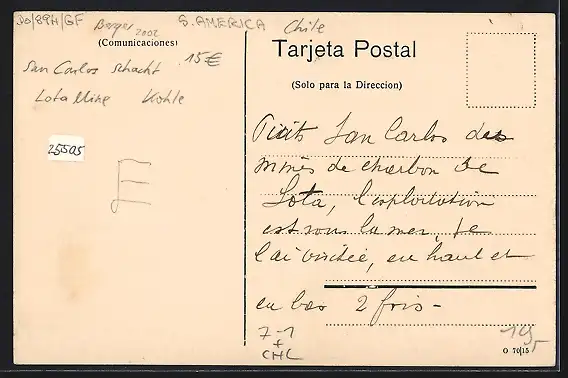 Do/89H/GF
Berger 2002
S. AMERICA
Chile
(Comunicaciones)
San Carlos Schacht
15€
Lota Mine Kohle
25505
E
Tarjeta Postal
(Solo para la Direccion)
Puits San Carlos des
mines de charbon de
Lota, l'exploitation
est sous la mer, je
l'ai visitée, en haut et
en bas 2 fois -
7-1
+
CHL
O 70|15